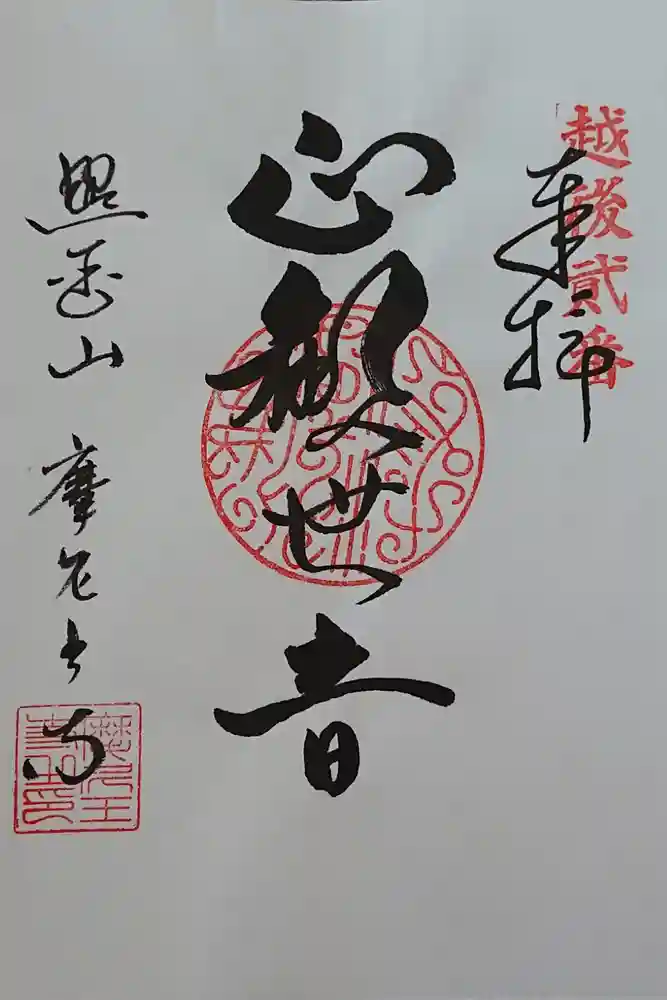 越後貳番
奉拝
正観世音
照金山 摩尼王寺